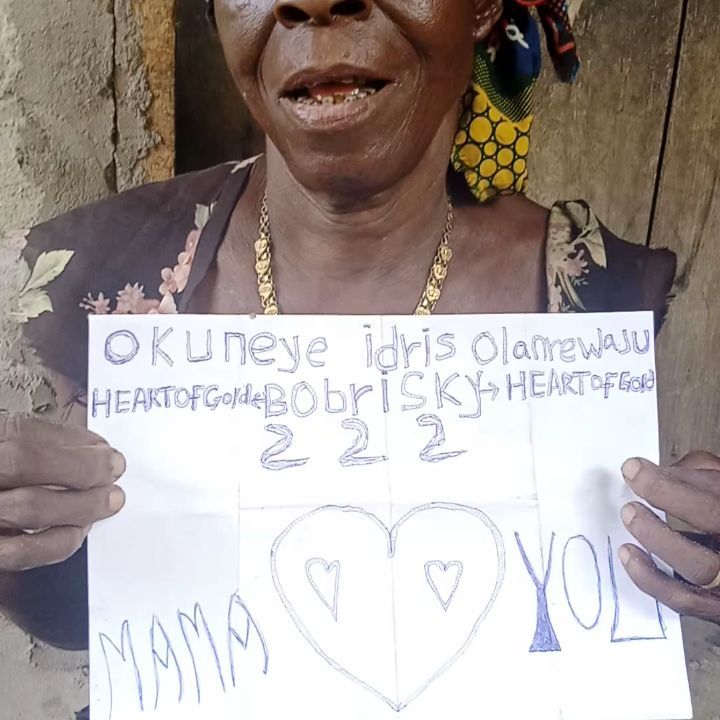 OKUNeye idris Olanrewaju
HEARTOfGold←BOBrISKY→HEARTOfGold
222
MAMA YOU